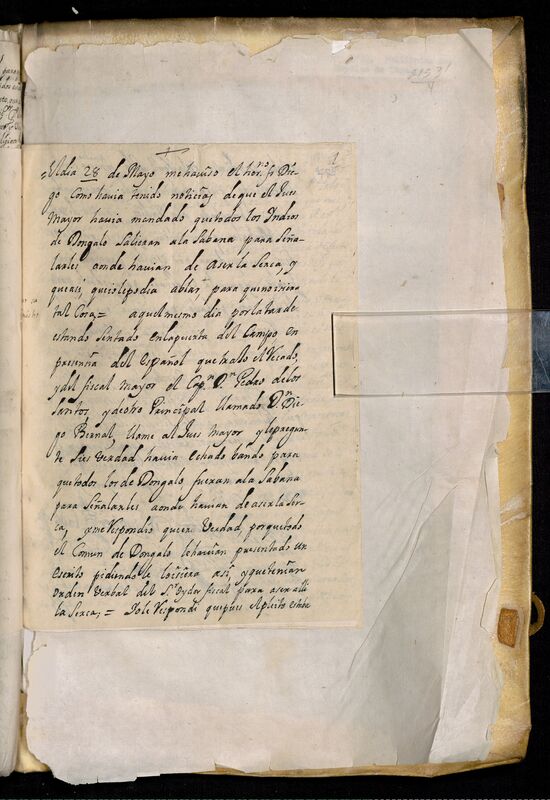 1
El dia 28 de Mayo me haviso el hor.no fr Die-
go Como havia tenido noticias de que el Jues
Mayor havia mandado que todos los Indios
de Dongalo Salieran a la Sabana para Seña-
larles aonde havian de aser la Serca, y
que asi, que io le podia ablar para que no isiera
tal Cosa,= aquel mesmo dia por la tarde
estando Sentado en la puerta del Campo en
presensia del español que trallo el
y del fiscal mayor el Cap.n D.n Pedro de los
Santos, y de otro Principal llamado D.n Die-
go Bernal, llame al Jues Mayor y le pregun-
te Si es Verdad havia echado bando para
que todos los de Dongalo fueran a la Sabana
para Señalarles aonde havian de aser la Ser-
ca, y me Respondio que era Verdad, porque todo
el Comun de Dongalo le havian presentado un
escrito pidiendole lo isiera asi, y que tenian
orden Verbal del S.r oydor fiscal para aser alli
la Serca,= Io le Respondi que pues el pleito estaba